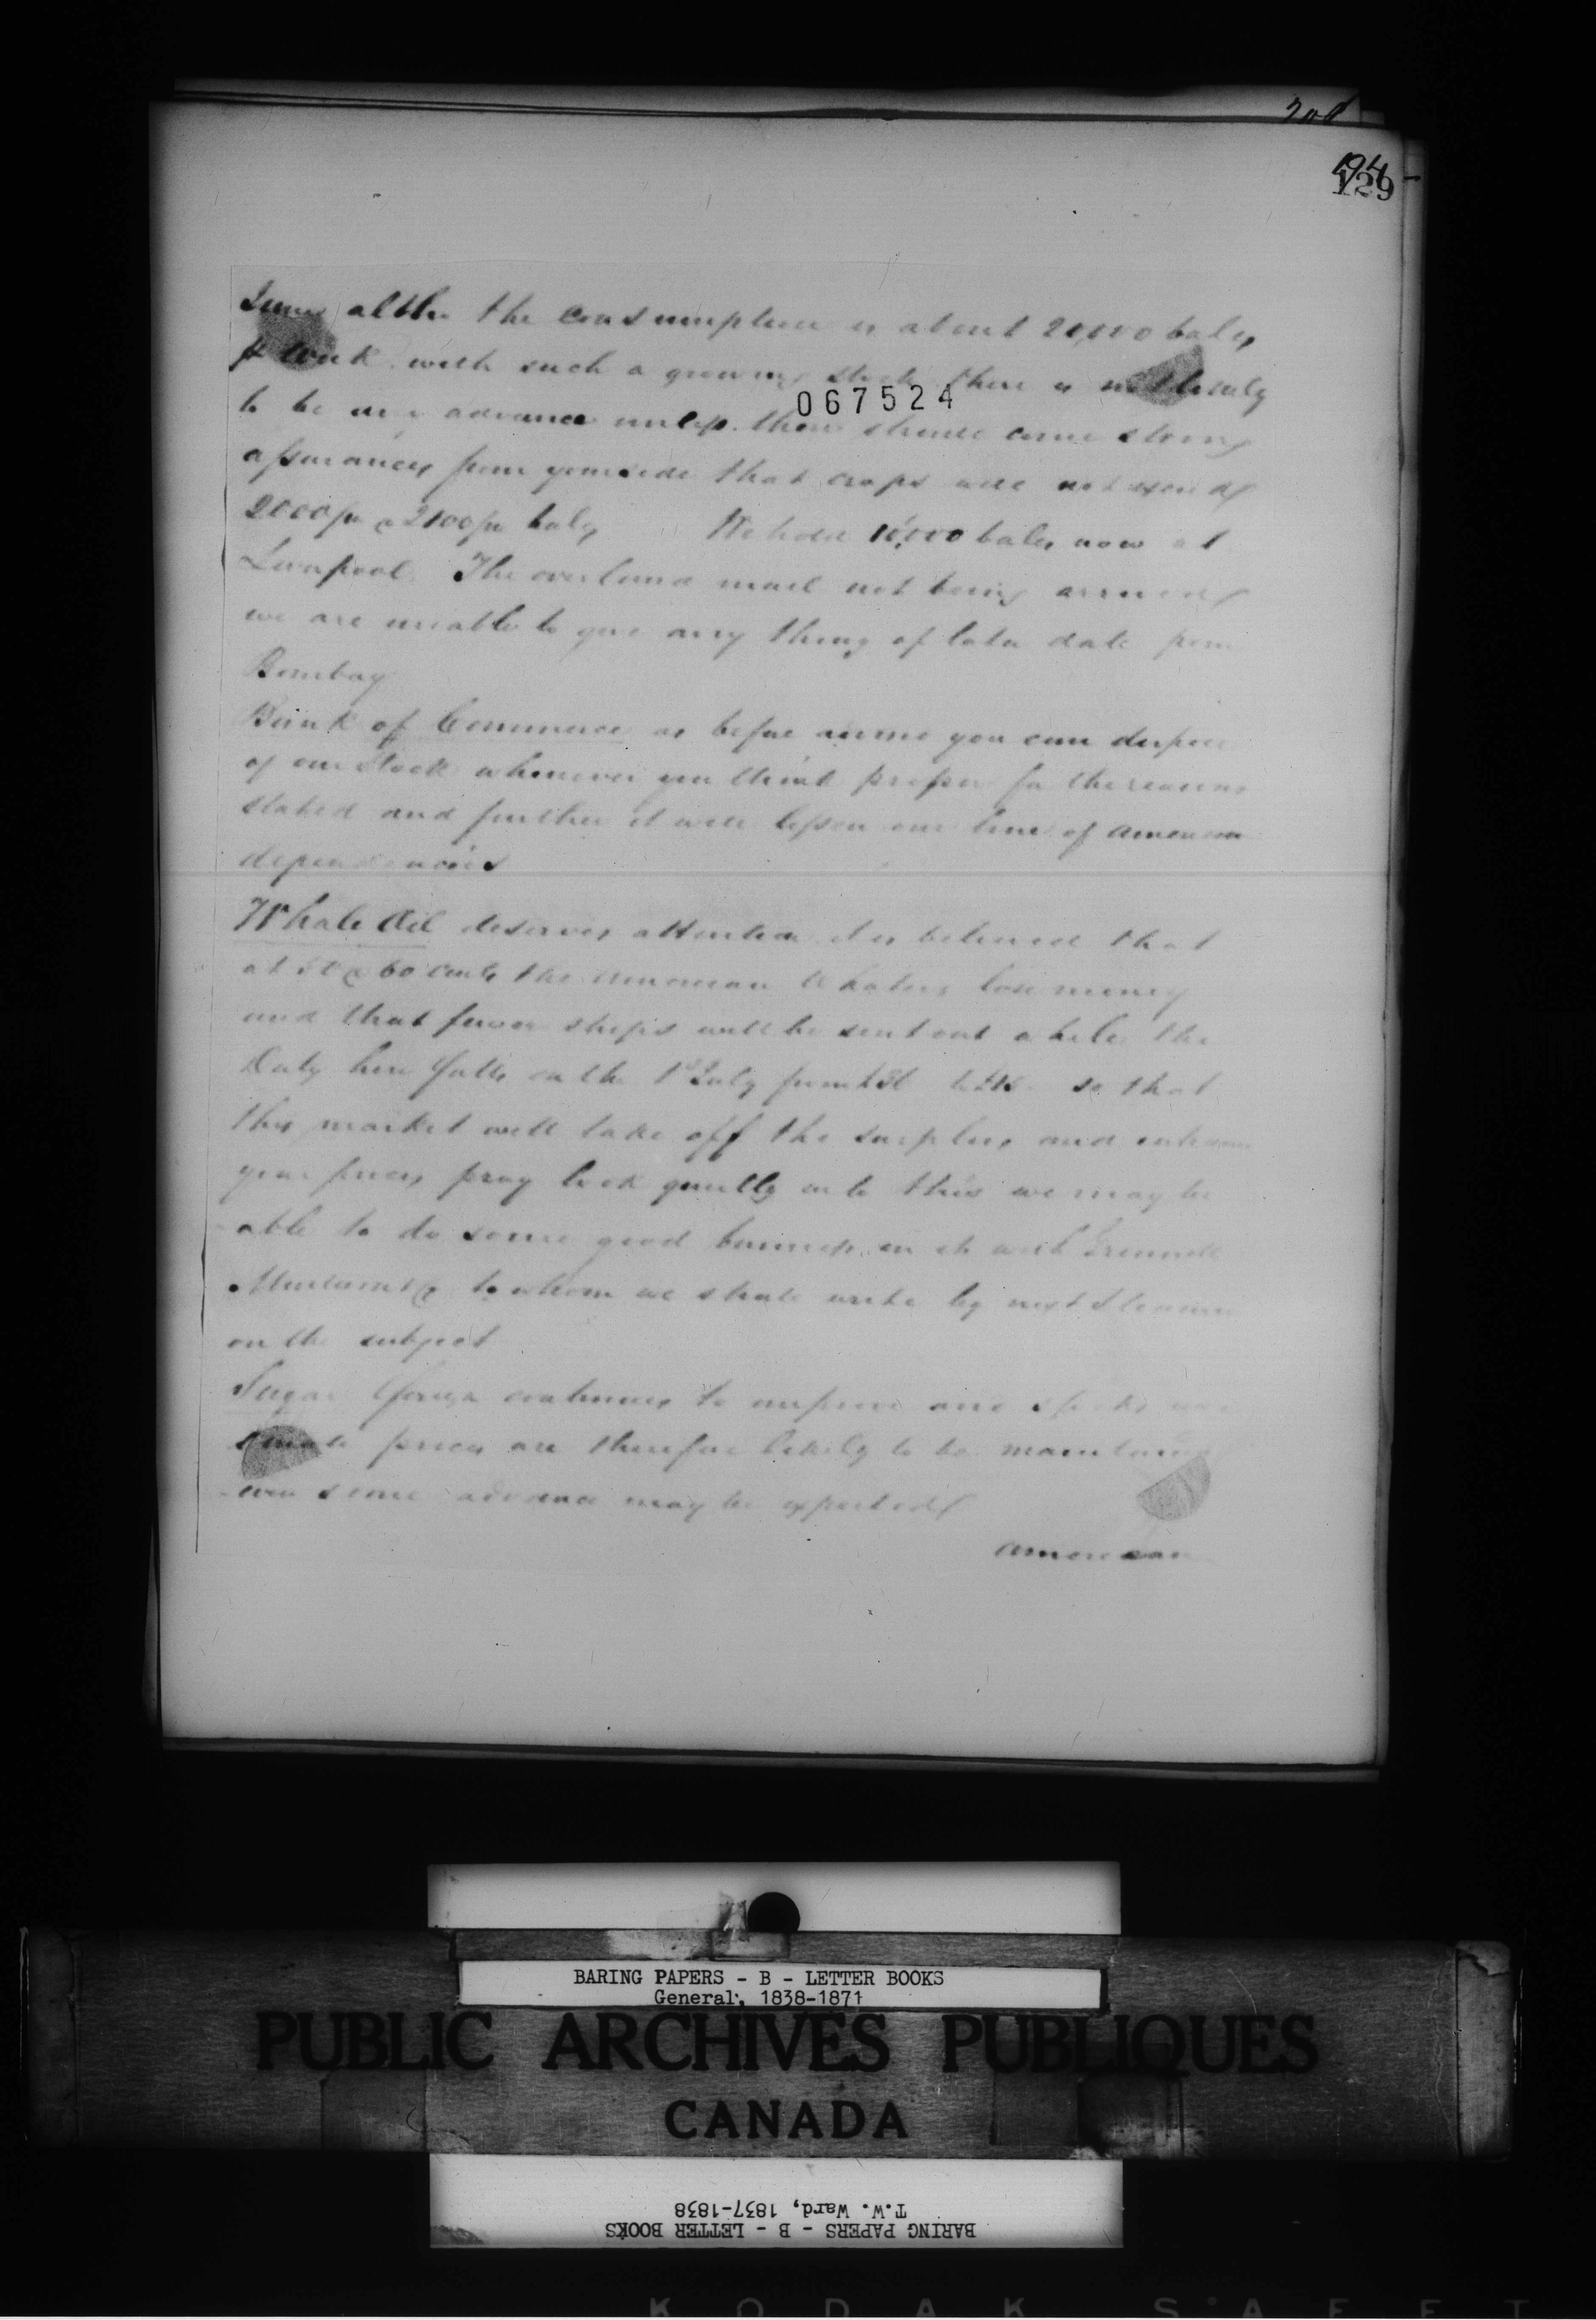 208
194
129
altho the consumption is about 20,000 bales
p week with such a growing stock there is not likely
067524
to be any advance unless there should come strong
assurances from your side that crops will not exceed
2000/m a 2100/m bales We hold 10,000 bales now at
Liverpool. The overland mail not being arrived
we are unable to give any thing of late date from
Bombay
Bank of Commerce as before advised you can dispose
of our Stock whenever you think proper for the reasons
stated and further it will lessen our line of American
dependencies
Whale Oil deserves attention it is believed that
at 50 @ 60 cents the American Whalers lose money
and that fewer ships will be sent out while the
Duty here falls on the 1st July from to so that
this market will take off the surplus and enhance
your prices pray look quietly into this we may be
able to do some good business in it with Grinnell
Minturn & Co to whom we shall write by next Steamer
on the subject
Sugar Foreign continues to improve and stocks are
prices are therefore likely to be maintained
even some advance may be expected
American
BARING PAPERS - B - LETTER BOOKS
General, 1838-1871
PUBLIC ARCHIVES PUBLIQUES
CANADA
T.W. Ward, 1837-1838
BARING PAPERS - B - LETTER BOOKS
KODAK SAFET